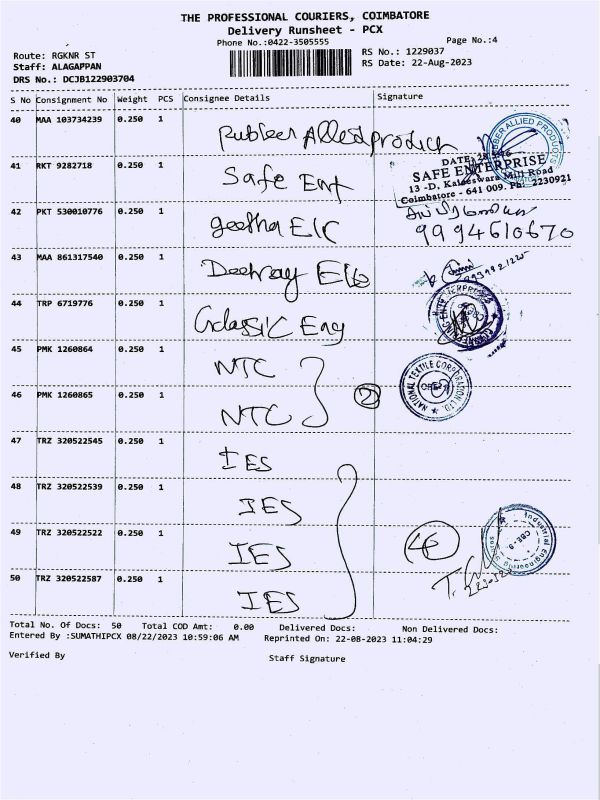 THE PROFESSIONAL COURIERS, COIMBATORE
Delivery Runsheet - PCX
Phone No.:0422-3505555
Page No.:4
Route: RGKNR ST
RS No.: 1229037
Staff: ALAGAPPAN
RS Date: 22-Aug-2023
DRS No.: DCJB122903704
S No Consignment No Weight PCS Consignee Details Signature
40 MAA 103734239 0.250 1 Rubber Allied Products
RUBBER ALLIED PRODUCTS
41 RKT 9282718 0.250 1 Safe Ent
SAFE ENTERPRISE
13 -D, Kaleeswara Mill Road
Coimbatore - 641 009. Ph: 2230921
42 PKT 530010776 0.250 1 geetha Elc
9994610670
43 MAA 861317540 0.250 1
44 TRP 6719776 0.250 1 Classic Eng
45 PMK 1260864 0.250 1 NTC
NATIONAL TEXTILE CORPORATION LTD.
46 PMK 1260865 0.250 1 NTC
2
47 TRZ 320522545 0.250 1 IES
48 TRZ 320522539 0.250 1 IES
49 TRZ 320522522 0.250 1 IES
4
Industrial Engineering
CBE-9
50 TRZ 320522587 0.250 1 IES
Total No. Of Docs: 50 Total COD Amt: 0.00 Delivered Docs: Non Delivered Docs:
Entered By :SUMATHIPCX 08/22/2023 10:59:06 AM Reprinted On: 22-08-2023 11:04:29
Verified By Staff Signature